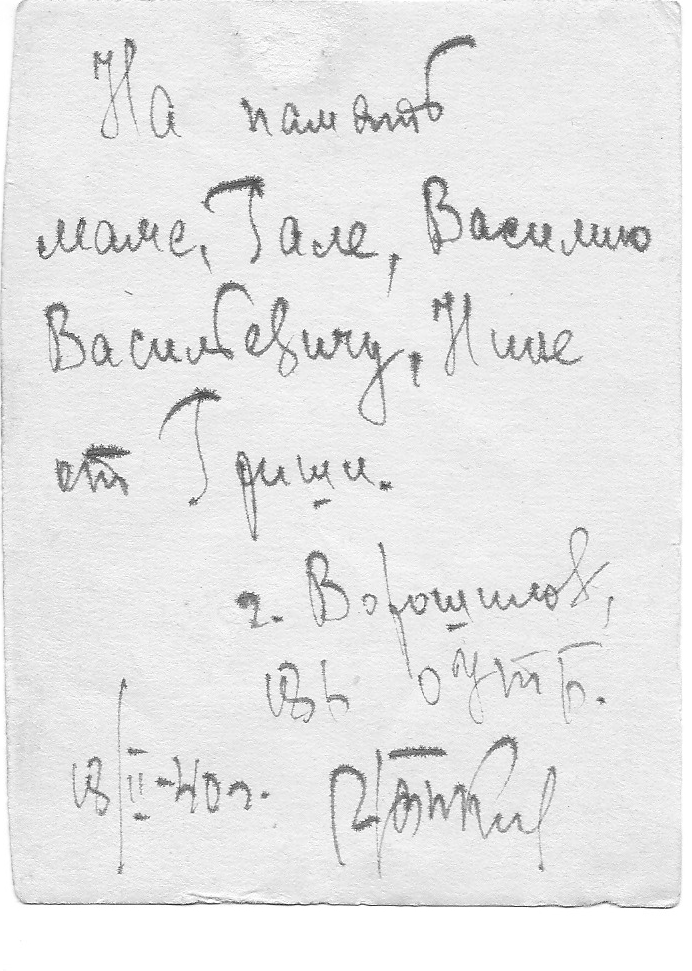 На память
маме, Гале, Василию
Васильевичу, Нине
от Гриши.
г. Ворошилов,
ОУТБ.
18/II-40г.